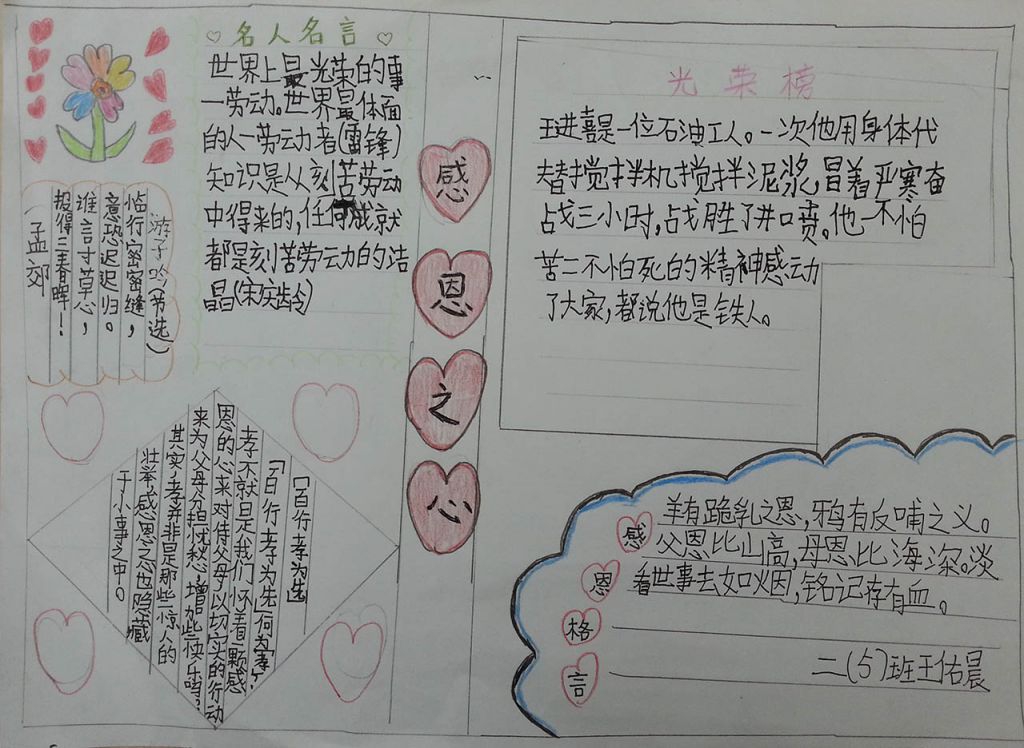 名人名言
世界上最光荣的事
一劳动。世界最体面
的人一劳动者(雷锋)
知识是从刻苦劳动
中得来的,任何成就
都是刻苦劳动的洁
晶(宋庆龄)
游子吟(节选)
临行密密缝,
意恐迟迟归。
谁言寸草心,
报得三春晖!
孟郊
感
恩
之
心
光荣榜
王进喜是一位石油工人。一次他用身体代
替搅拌机搅拌泥浆,冒着严寒奋
战三小时,战胜了井口喷。他一不怕
苦二不怕死的精神感动
了大家,都说他是铁人。
百行孝为先
「百行孝为先」何为孝?
孝不就是我们怀着一颗感
恩的心来对侍父母以切实的行动
来为父母分担忧愁、增加些快乐吗?
其实,孝并非是那些惊人的
壮举,感恩之心也隐藏
于小事之中。
感
恩
格
言
羊有跪乳之恩,鸦有反哺之义。
父恩比山高,母恩比海深。淡
看世事去如烟,铭记存有血。
二(5)班王佑晨